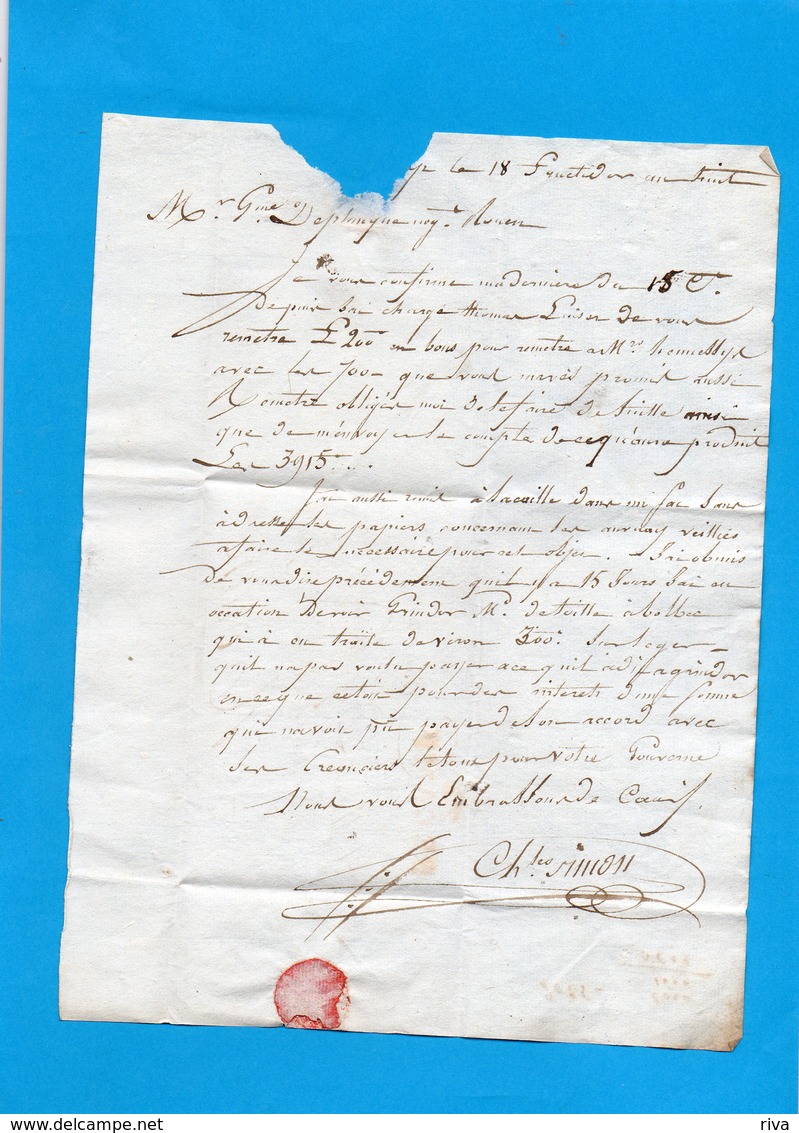 le 18 Fructidor an huit
Mr. Gme Deplanque negt. Rouen
Je vous confirme ma derniere du 15 Ct.
Depuis Jai chargé thomas de vous
remetre £ 200 en bons pour remetre a Mrs. hennessys
avec les 700 - que vous mavés promis aussi
Remetre obligés moi de le faire de suitte ainsi
que de menvoyer le compte de ce qu'aura produit
Les 3915
J'ai aussi remis à lacaille dans un sac Sans
adresse les papiers concernant les auvray veilliés
afaire le necessaire pour cet objet. J'ai obmis
de vous dire précédement quil y a 15 Jours Jai eu
occation De voir Grindor Md. de toille à bolbec
qui à eu traite denviron 300 Sur leger
quil na pas voulu payer a ce quil a dit a grindor
en ce que cetoit pour des interets dune somme
quil navoit pu payer de son accord avec
Ses Creanciers le tout pour votre Gouverne
Nous vous Embrassons de Coeur
Chles Simon
riva